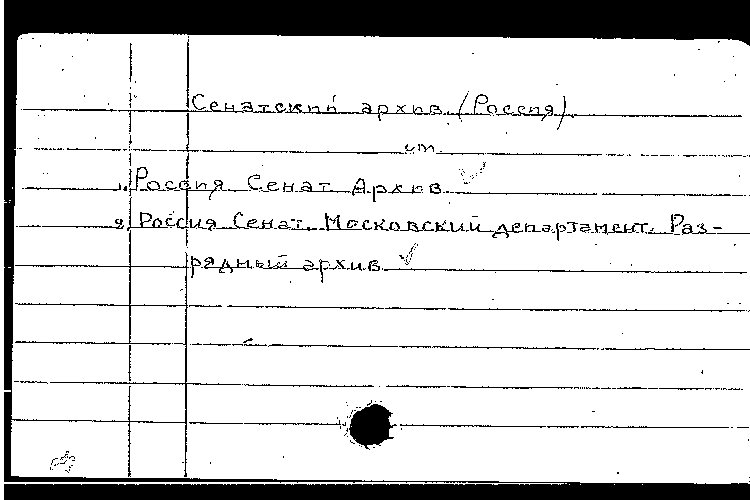 Сенатский архив (Россия).
см.
1. Россия Сенат Архив
2. Россия Сенат. Московский департамент. Раз-
рядный архив